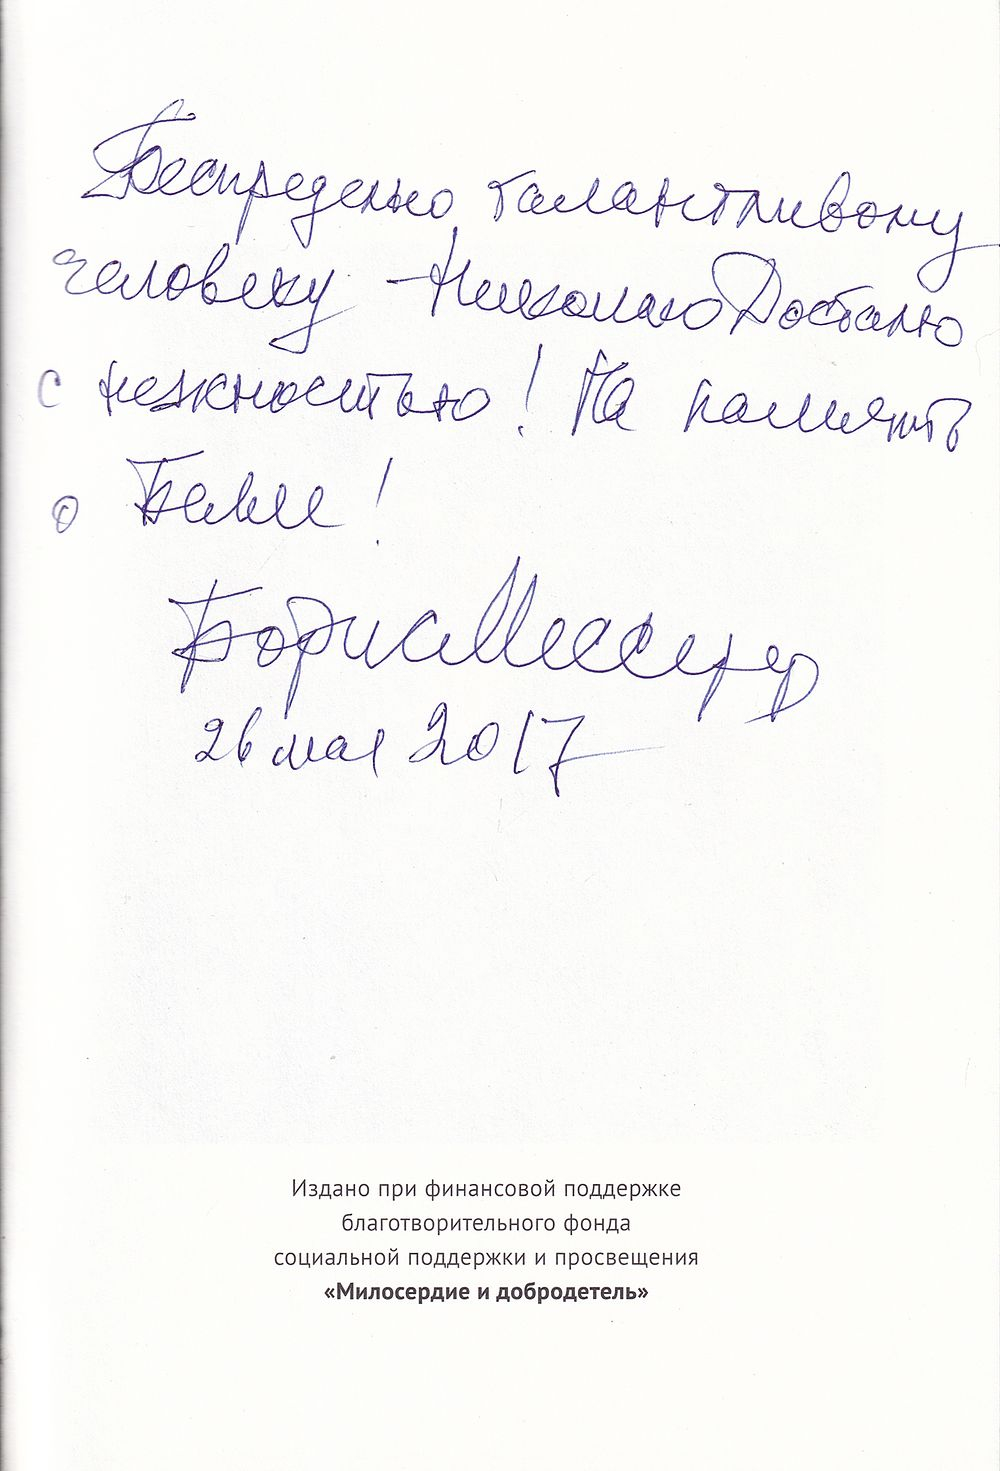 Беспредельно талантливому
человеку – Николаю Досталю
с нежностью! На память
о Белле!
Борис Мессерер
26 мая 2017
Издано при финансовой поддержке
благотворительного фонда
социальной поддержки и просвещения
«Милосердие и добродетель»